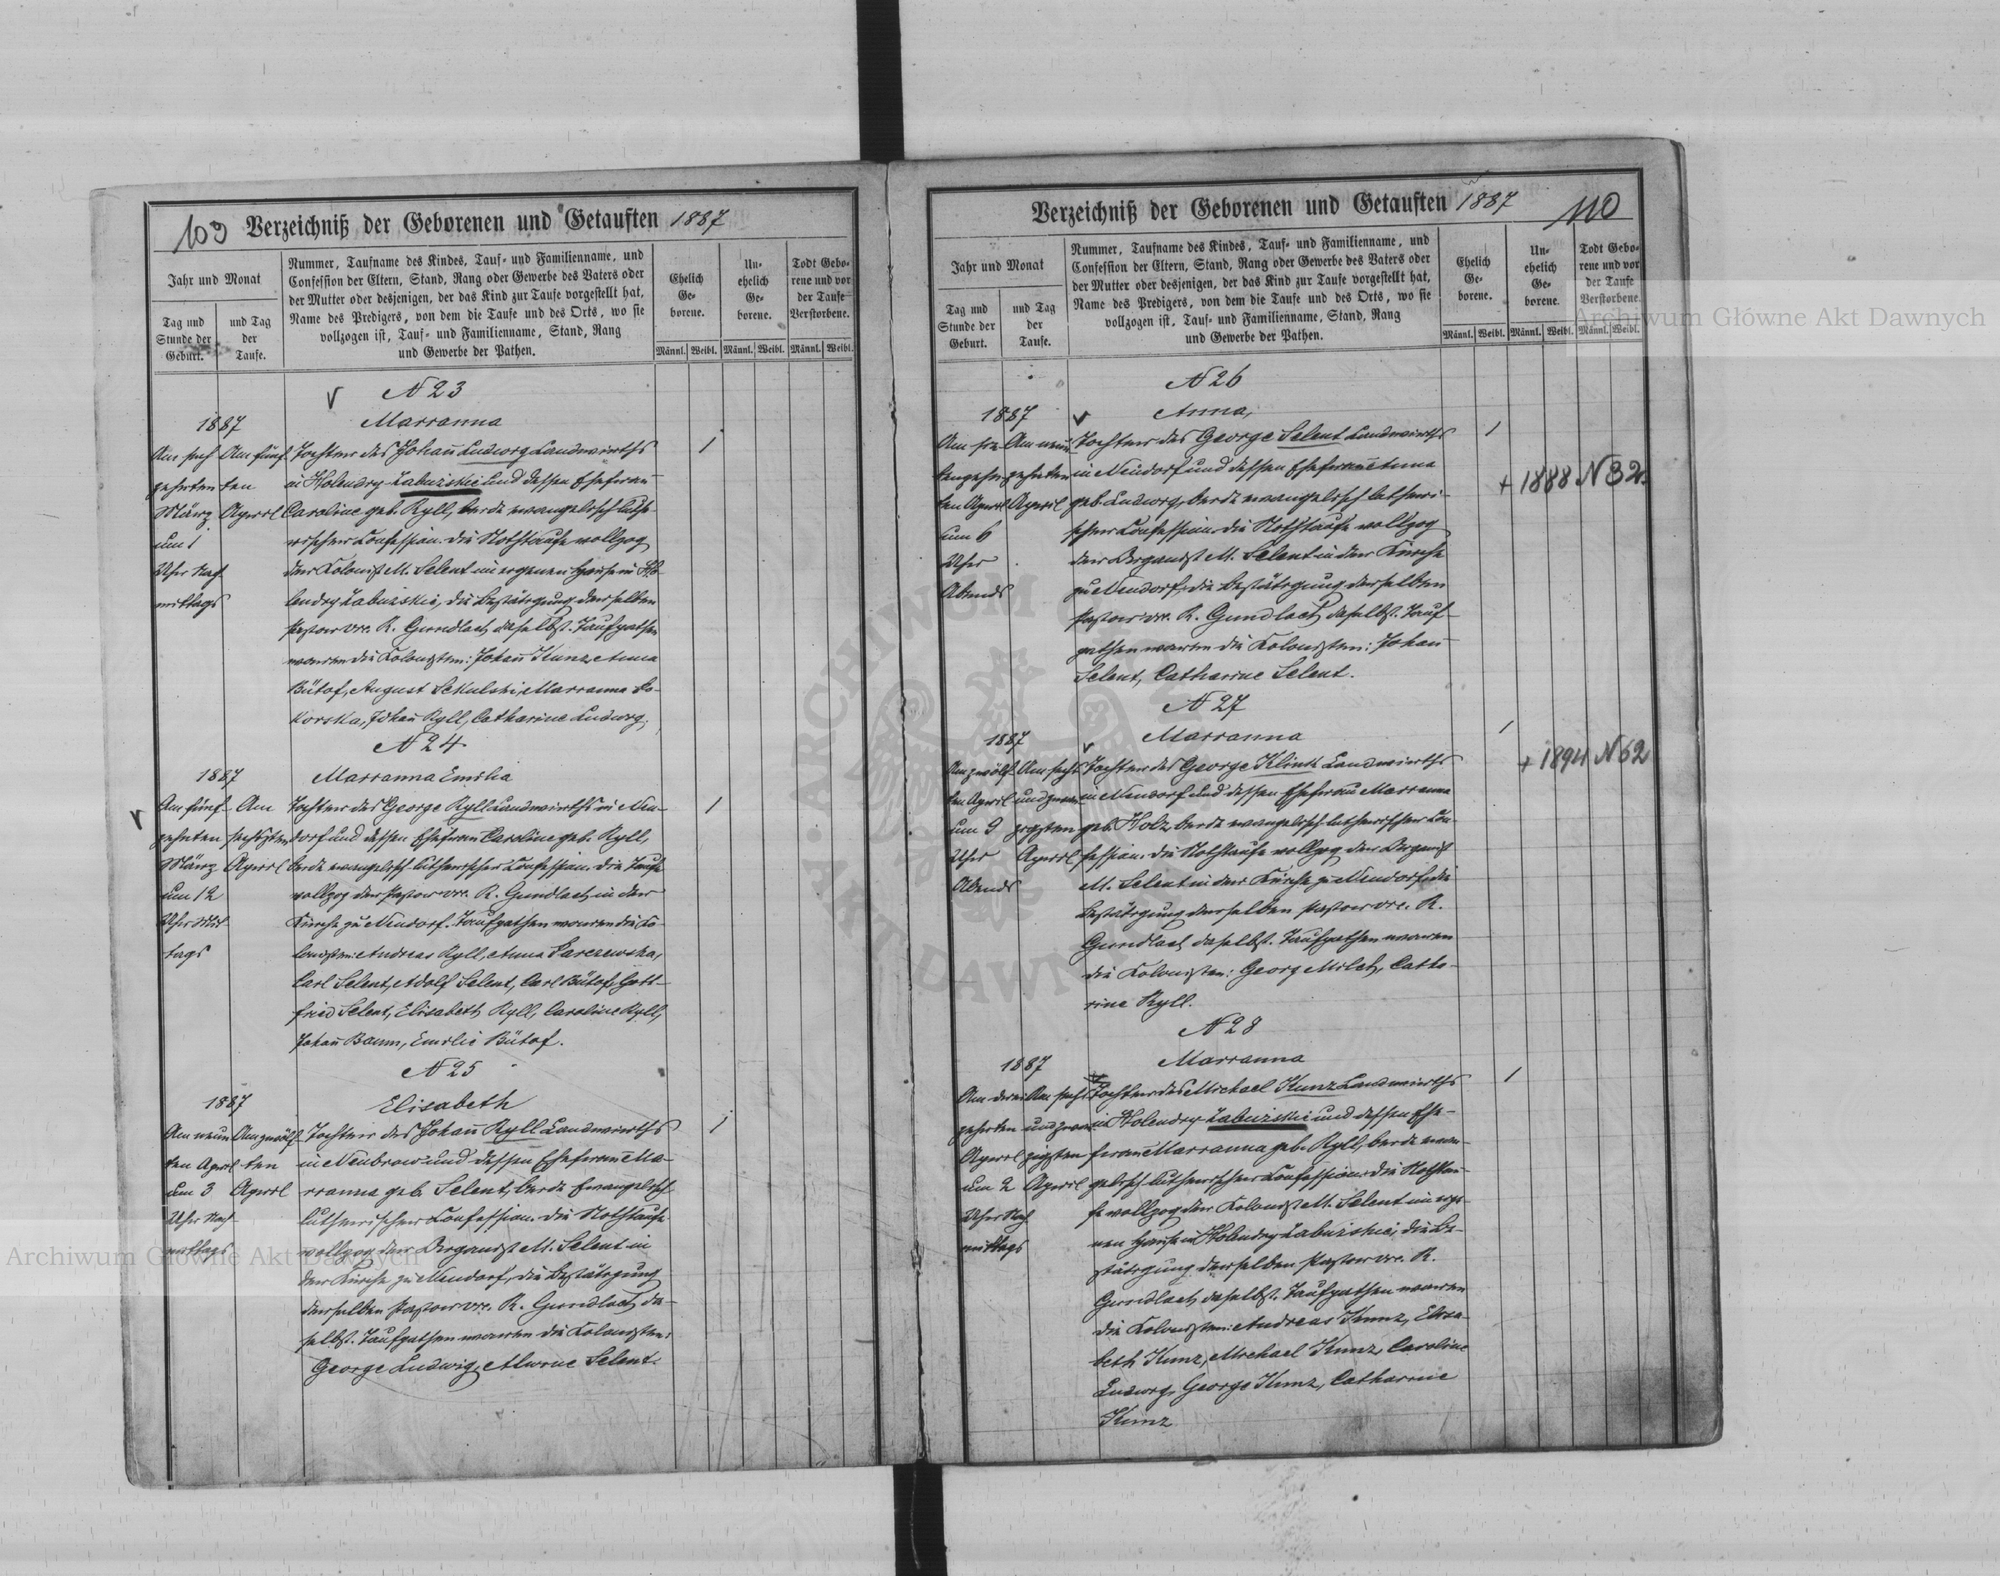 109 Verzeichniß der Geborenen und Getauften 1887
Jahr und Monat
Tag und Stunde der Geburt.
und Tag der Taufe.
Nummer, Taufname des Kindes, Tauf- und Familienname, und
Confession der Eltern, Stand, Rang oder Gewerbe des Vaters oder
der Mutter oder desjenigen, der das Kind zur Taufe vorgestellt hat,
Name des Predigers, von dem die Taufe und des Orts, wo sie
vollzogen ist, Tauf- und Familienname, Stand, Rang
und Gewerbe der Pathen.
Ehelich Ge- borene.
Un- ehelich Ge- borene.
Todt Gebo- rene und vor der Taufe Verstorbene.
Männl. Weibl. Männl. Weibl. Männl. Weibl.
N 23
1887
Am sech- zehnten März um 1 Uhr Nach- mittags
Am fünf- ten April
Marianna
Tochter des Johann Ludwig Landwirths
in Holendry Zabuzskie und dessen Ehefrau
Caroline geb. Ryll, beide evangelisch luthe-
rischer Confession. Die Nothtaufe vollzog
der Kolonist M. Selent im eigenen Hause in Ho-
lendry Zabuzskie, die Bestätigung derselben
Pastor vic. R. Gundlach daselbst. Taufpathen
waren die Kolonisten: Johann Kunz, Anna
Bütof, August Sekulski, Marianna Si-
korska, Johann Ryll, Catharine Ludwig.
1
N 24
1887
Am fünf- zehnten März um 12 Uhr Mit- tags
Am sechsten April
Marianna Emilia
Tochter des George Ryll Landwirths in Neu-
dorf und dessen Ehefrau Caroline geb. Ryll,
beide evangelisch lutherischer Confession. Die Taufe
vollzog der Pastor vic. R. Gundlach in der
Kirche zu Neudorf. Taufpathen waren die Ko-
lonisten: Andreas Ryll, Anna
Carl Selent, Adolf Selent, Carl Bütof, Gott-
fried Selent, Elisabeth Ryll, Caroline Ryll,
Johann Baum, Emilie Bütof.
1
N 25
1887
Am neun- ten April um 3 Uhr Nach- mittags
Am zwölf- ten April
Elisabeth
Tochter des Johann Ryll Landwirths
in Neubrow und dessen Ehefrau Ma-
rianna geb. Selent, beide Evangelisch
lutherischer Confession. Die Nothtaufe
vollzog der Organist M. Selent in
der Kirche zu Neudorf, die Bestätigung
derselben Pastor vic. R. Gundlach da-
selbst. Taufpathen waren die Kolonisten:
George Ludwig, Alwine Selent.
1
Verzeichniß der Geborenen und Getauften 1887 110
Jahr und Monat
Tag und Stunde der Geburt.
und Tag der Taufe.
Nummer, Taufname des Kindes, Tauf- und Familienname, und
Confession der Eltern, Stand, Rang oder Gewerbe des Vaters oder
der Mutter oder desjenigen, der das Kind zur Taufe vorgestellt hat,
Name des Predigers, von dem die Taufe und des Orts, wo sie
vollzogen ist, Tauf- und Familienname, Stand, Rang
und Gewerbe der Pathen.
Ehelich Ge- borene.
Un- ehelich Ge- borene.
Todt Gebo- rene und vor der Taufe Verstorbene.
Männl. Weibl. Männl. Weibl. Männl. Weibl.
N 26
1887
Am sie- bengehn- ten April um 6 Uhr Abends
Am neun- zehnten April
Anna,
Tochter des George Selent Landwirths
in Neudorf und dessen Ehefrau Anna
geb. Ludwig, beide evangelisch lutheri-
scher Confession. Die Nothtaufe vollzog
der Organist M. Selent in der Kirche
zu Neudorf, die Bestätigung derselben
Pastor vic. R. Gundlach daselbst. Tauf-
pathen waren die Kolonisten: Johann
Selent, Catharine Selent.
1
+ 1888 N 32.
N 27
1887
Am zwölf- ten April um 9 Uhr Abends
Am sechs- undzwan- zigsten April
Marianna
Tochter des George Klink Landwirths
in Neudorf und dessen Ehefrau Marianna
geb. Holz, beide evangelisch lutherischer Con-
fession. Die Nothtaufe vollzog der Organist
M. Selent in der Kirche zu Neudorf, die
Bestätigung derselben Pastor vic. R.
Gundlach daselbst. Taufpathen waren
die Kolonisten: Georg Milch, Catha-
rine Ryll.
1
+ 1894 N 62
N 28
1887
Am drei- zehnten April um 2 Uhr Nach- mittags
Am sechs- undzwan- zigsten April
Marianna
Tochter des Michael Kunz Landwirths
in Holendry Zabuzskie und dessen Ehe-
frau Marianna geb. Ryll, beide evan-
gelisch lutherischer Confession. Die Nothtau-
fe vollzog der Kolonist M. Selent im eige-
nen Hause in Holendry Zabuzskie, die Be-
stätigung derselben Pastor vic. R.
Gundlach daselbst. Taufpathen waren
die Kolonisten: Andreas Kunz, Elisa-
beth Kunz, Michael Kunz, Caroline
Ludwig, George Kunz, Catharine
Kunz
1
Archiwum Główne Akt Dawnych
Archiwum Główne Akt Dawnych